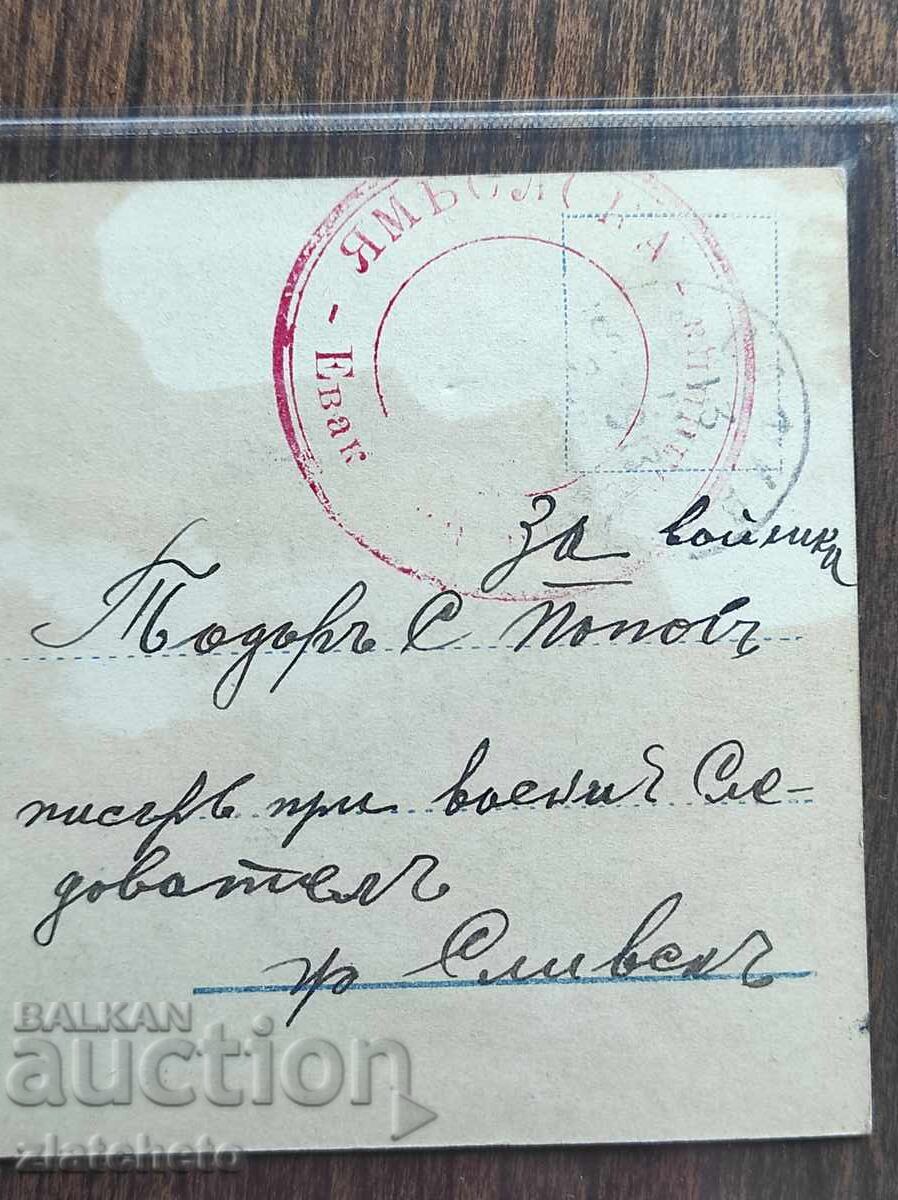 ЯМЪБОЛСКА
Евак
За войника
Тодоръ С Попов
писаръ при военния Сле-
дователъ
гр Сливенъ
BALKAN
auction
zlatcheto